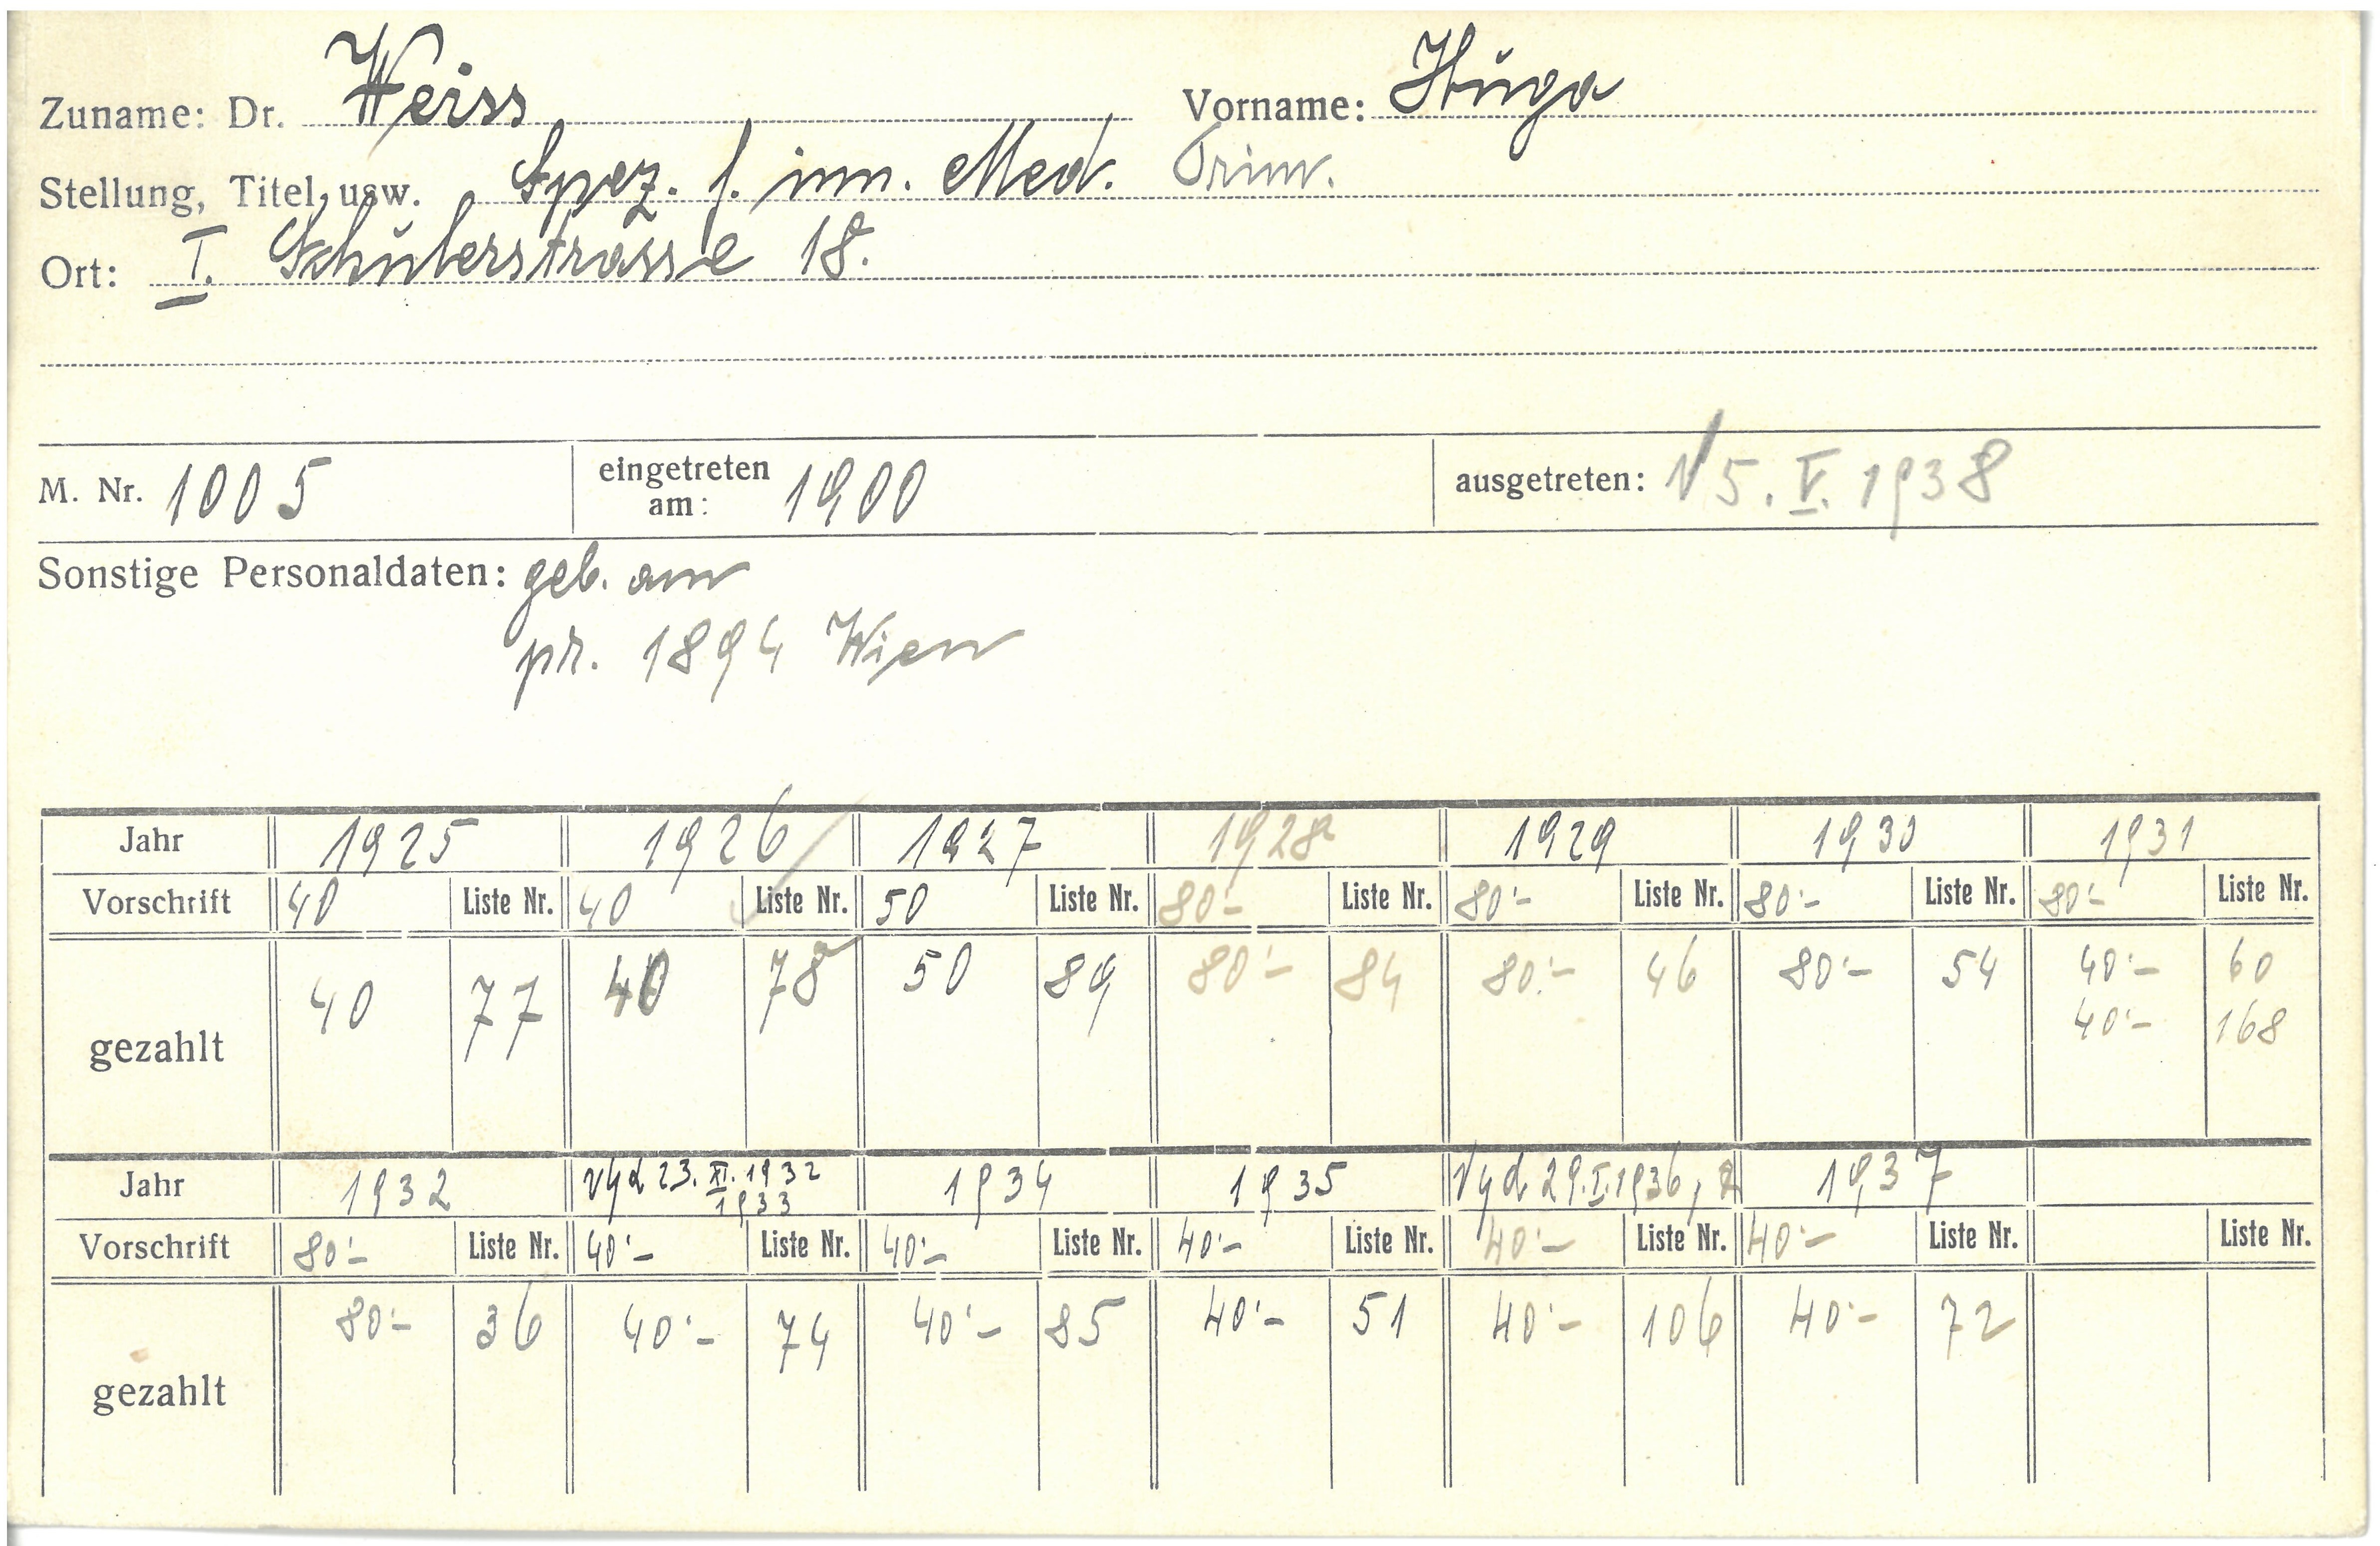 Zuname: Dr. Weiss Vorname: Hugo
Stellung, Titel usw. Spez. f. inn. Med. Prim.
Ort: I. Schulerstrasse 18.
M. Nr. 1005 eingetreten am: 1900 ausgetreten: 15. V. 1938
Sonstige Personaldaten: geb. am
pr. 1894 Wien
Jahr 1925 1926 1927 1928 1929 1930 1931
Vorschrift 40 Liste Nr. 40 Liste Nr. 50 Liste Nr. 80·- Liste Nr. 80·- Liste Nr. 80·- Liste Nr. 80·- Liste Nr.
gezahlt 40 77 40 78a 50 89 80·- 84 80·- 46 80·- 54 40·- 60
40·- 168
Jahr 1932 Vgd 23. XI. 1932 1934 1935 Vgd 29. I. 1936, 1937
1933
Vorschrift 80·- Liste Nr. 40·- Liste Nr. 40·- Liste Nr. 40·- Liste Nr. 40·- Liste Nr. 40·- Liste Nr. Liste Nr.
gezahlt 80·- 36 40·- 74 40·- 85 40·- 51 40·- 106 40·- 72